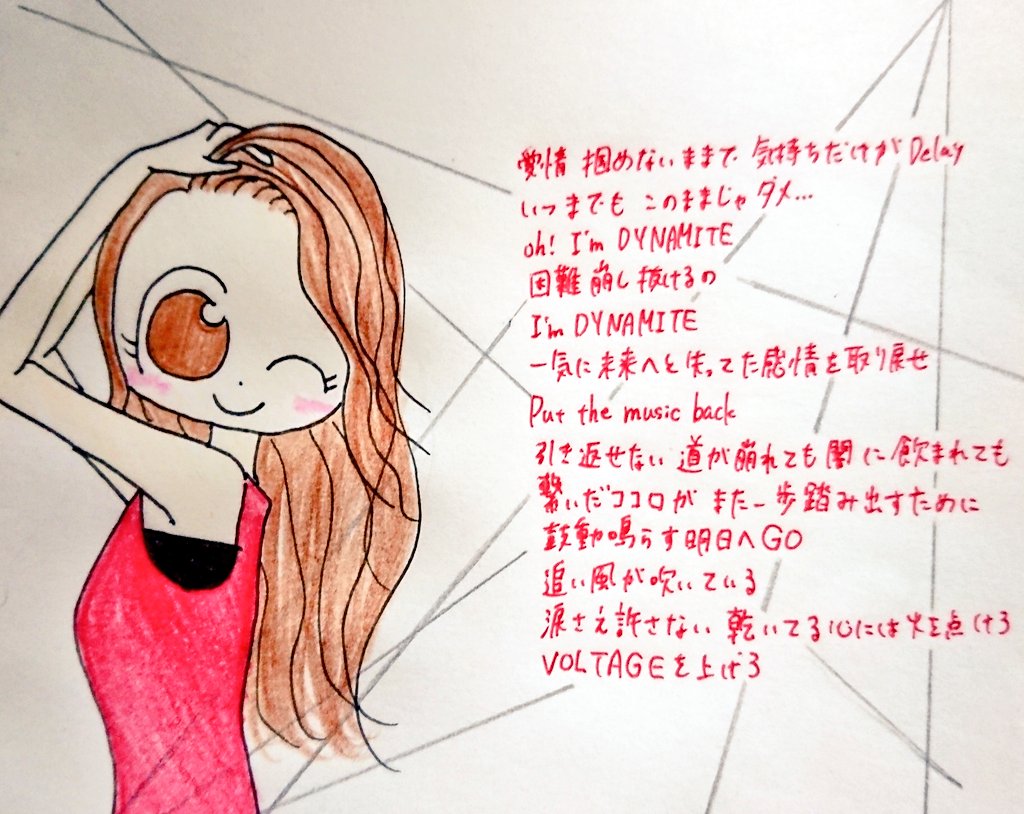 愛情 掴めないままで 気持ちだけが Delay
いつまでも このままじゃダメ...
oh! I'm DYNAMITE
困難崩し抜けるの
I'm DYNAMITE
一気に未来へと失ってた感情を取り戻せ
Put the music back
引き返せない 道が崩れても 闇に飲まれても
繋いだココロが また一歩踏み出すために
鼓動鳴らす明日へGO
追い風が吹いている
涙さえ許さない 乾いてる心には火を点けろ
VOLTAGEを上げろ